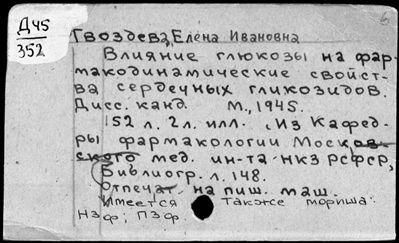 Д45
352
6
Гвоздева, Елена Ивановна
Влияние глюкозы на фар-
макодинамические свойст-
ва сердечных гликозидов.
Дисс. канд. М., 1945.
152 л. 2л. илл. (Из Кафед-
ры фармакологии Москов-
ского мед. ин-та НКЗ РСФСР,
Библиогр. л. 148.
Отпечат. на пиш. маш.
Имеется также
НЗФ; ПЗФ.